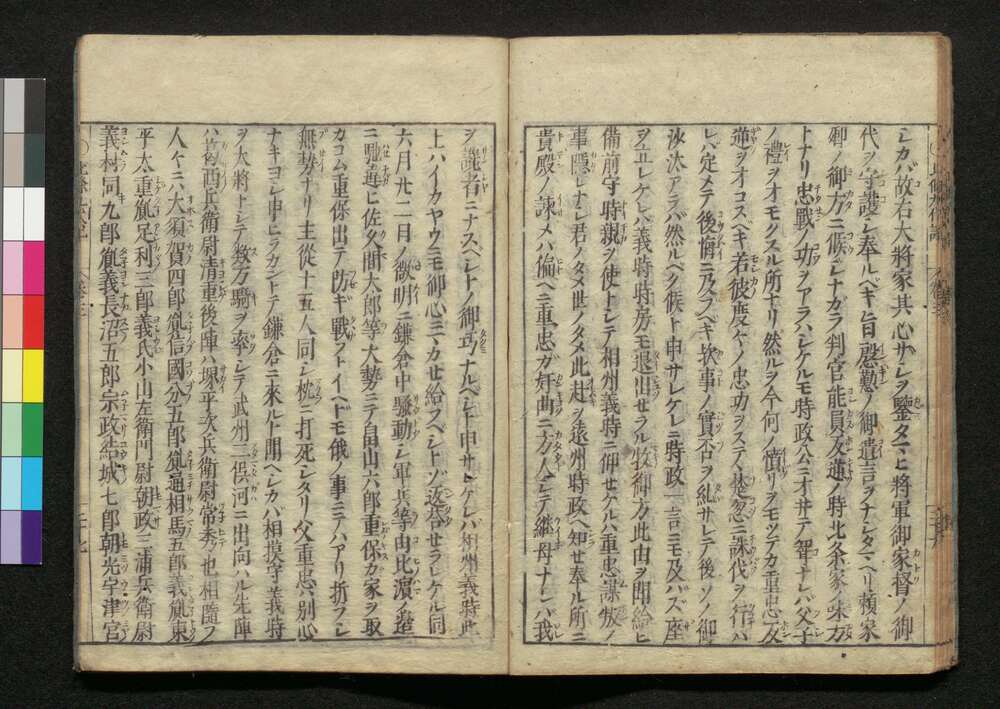 シカバ故右大將家其心サシヲ鑒タマヒ將軍御家督ノ御
代ヲ守護シ奉ルベキ旨慇懃ノ御遺言ヲナシタマヘリ頼家
卿ノ御方ニ候シナガラ判官能員反逆ノ時北条家ノ味方
トナリ忠戰ノ功ヲアラハシケルモ時政公ニオヰテ聟ナレバ父子
ノ禮ヲオモクスル所ナリ然ルヲ今何ノ憤リヲモツテカ重忠反
逆ヲオコスベキ若彼度々ノ忠功ヲステ楚忽ニ誅伐ヲ行ハ
レバ定メテ後悔ニ及フベキ歟事ノ實否ヲ糺サレテ後ソノ御
沙汰アラバ然ルベク候ト申サレケレニ時政一言ニモ及バズ座
ヲ立レケレバ義時時房モ退出セラル牧御方此由ヲ聞給ヒ
備前守時親ヲ使トシテ相州義時ニ仰セケルハ重忠謀叛ノ
事隱レナシ君ノタメ世ノタメ此赴ヲ遠州時政ヘ知セ奉ル所ニ
貴殿ノ諫メハ偏ヘニ重忠ガ奸曲ニ方人シテ継母ナレバ我
ヲ讒者ニナスベシトノ御巧ナルベシト申サレケレバ相州義時此
上ハイカヤウニモ御心ニマカセ給フベシトゾ返答セラレケル同
六月廿二日ノ欲明ニ鎌倉中騒動シ軍兵等由比濱ノ邊
ニ馳違ヒ佐久間太郎等大勢ニテ畠山六郎重保カ家ヲ取
カコム重保出テ防ギ戰フトイヘドモ俄ノ事ニテハアリ折フシ
無勢ナリ主從十五人同シ枕ニ打死シタリ父重忠ハ別心
ナキヨシ申ヒラカントテ鎌倉ニ來ルト聞ヘシカハ相摸守義時
ヲ大將トシテ數万騎ヲ率シテ武州二俣河ニ出向ハル先陣
ハ葛西兵衛尉清重後陣ハ堺平次兵衛尉常秀也相隨フ
人々ニハ大須賀四郎胤信國分五郎胤通相馬五郎義胤東
平太重胤足利三郎義氏小山左衛門尉朝政三浦兵衛尉
義村同九郎胤義長沼五郎宗政結城七郎朝光宇津宮